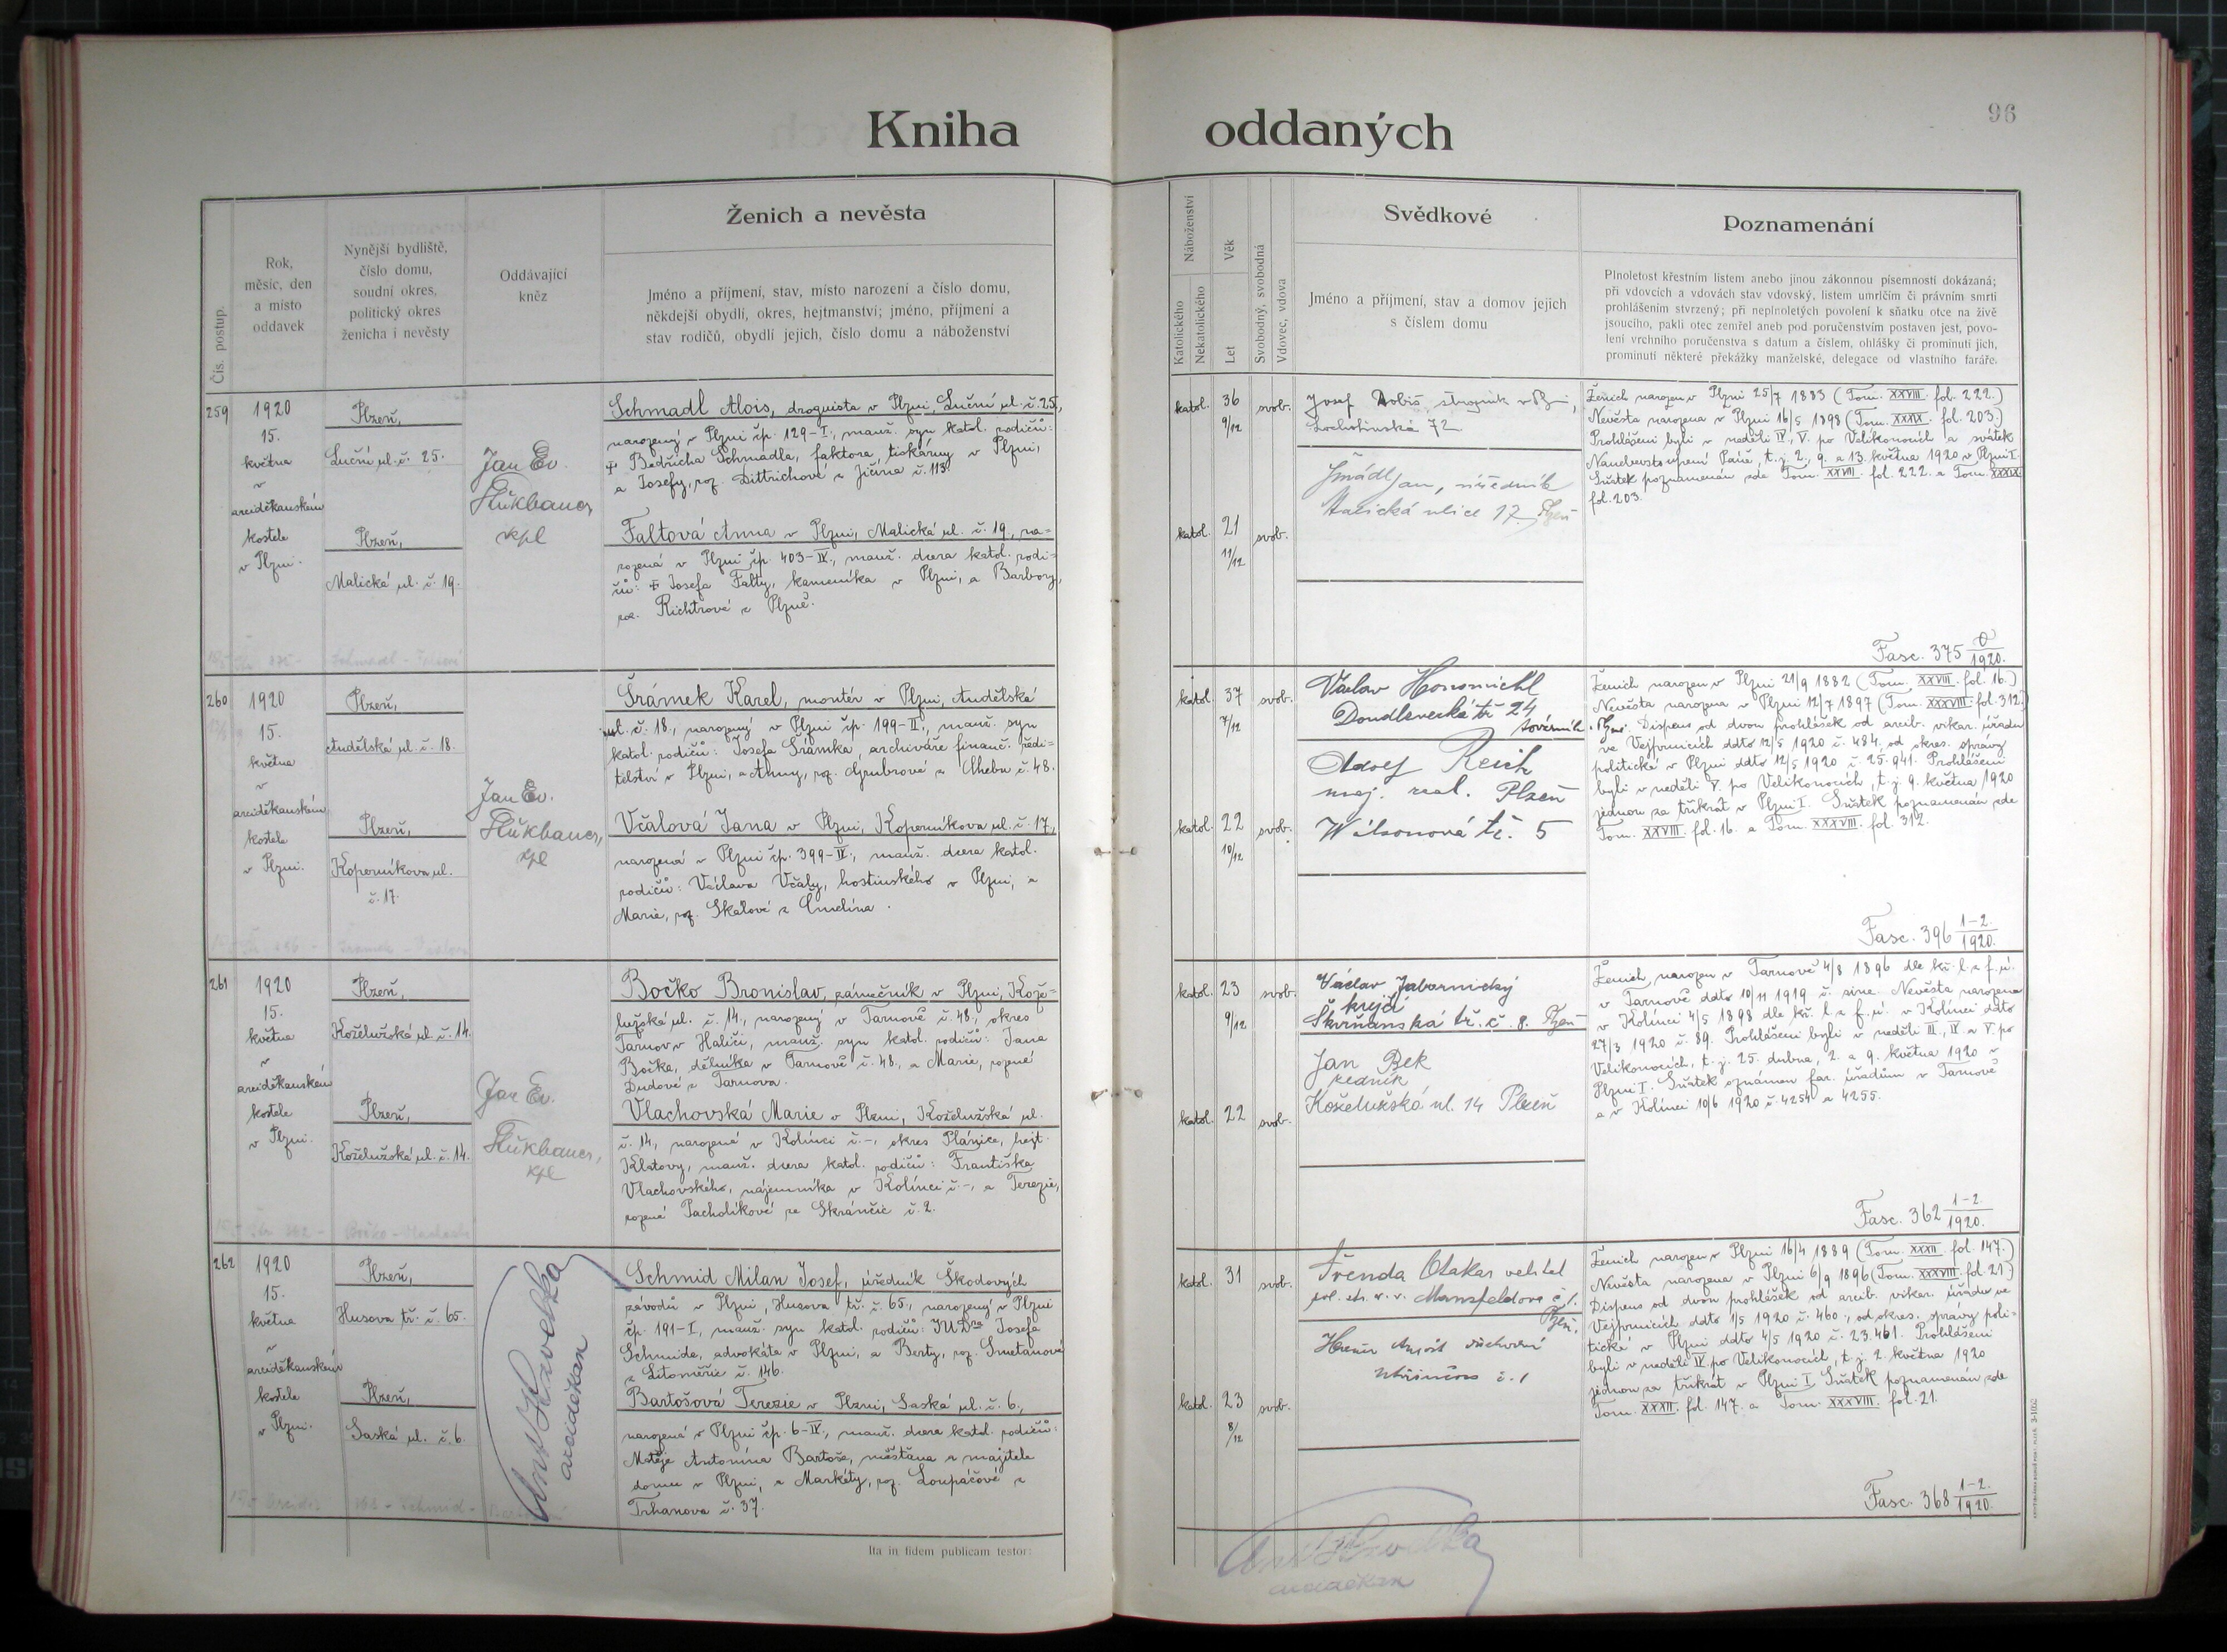 96
Kniha oddaných
Čís. postup.
Rok,
měsíc, den
a místo
oddavek
Nynější bydliště,
číslo domu,
soudní okres,
politický okres
ženicha i nevěsty
Oddávající
kněz
Ženich a nevěsta
Jméno a příjmení, stav, místo narození a číslo domu,
někdejší obydlí, okres, hejtmanství; jméno, příjmení a
stav rodičů, obydlí jejich, číslo domu a náboženství
Náboženství
Katolického
Nekatolického
Věk
Let
Svobodný, svobodná
Vdovec, vdova
Svědkové
Jméno a příjmení, stav a domov jejich
s číslem domu
Poznamenání
Plnoletost křestním listem anebo jinou zákonnou písemností dokázaná;
při vdovcích a vdovách stav vdovský, listem umrlčím či právním smrti
prohlášením stvrzený; při neplnoletých povolení k sňatku otce na živě
jsoucího, pakli otec zemřel aneb pod poručenstvím postaven jest, povo-
lení vrchního poručenstva s datum a číslem, ohlášky či prominutí jich,
prominutí některé překážky manželské, delegace od vlastního faráře.
259
1920
15.
května
v
arciděkanském
kostele
v Plzni.
Plzeň,
Luční ul. č. 25.
Plzeň,
Malická ul. č. 19.
Jan Ev.
kpl
Schmadl Alois, droguista v Plzni, Luční ul. č. 25,
narozený v Plzni čp. 129-I., manž. syn katol. rodičů:
Bedřicha Schmadla, faktora tiskárny v Plzni,
a Josefy, roz. Dittrichové z Jičína č. 113.
Faltová Anna v Plzni, Malická ul. č. 19., na-
rozená v Plzni čp. 403-IV., manž. dcera katol. rodi-
čů: Josefa Falty, kameníka v Plzni, a Barbory,
roz. Richtrové z Plzně.
katol. 36 9/12 svob.
katol. 21 11/12 svob.
Josef strojník v
Lochotínská 72
Jan, úředník
ulice 17. Plzeň
Ženich narozen v Plzni 25/7 1883 (Tom. XXVIII. fol. 222.)
Nevěsta narozena v Plzni 16/5 1898 (Tom. XXXIX. fol. 203.)
Prohlášeni byli v neděli IV., V. po Velikonocích a svátek
Nanebevstoupení Páně, t. j. 2., 9. a 13. května 1920 v Plzni I.
Sňatek poznamenán zde Tom. XXVIII. fol. 222. a Tom. XXXIX.
fol. 203.
Fasc. 375 /1920.
260
1920
15.
května
v
arciděkanském
kostele
v Plzni.
Plzeň,
Andělská ul. č. 18.
Plzeň,
Koperníkova ul.
č. 17.
Jan Ev.
kpl
Šrámek Karel, montér v Plzni, Andělská
ul. č. 18, narozený v Plzni čp. 199-II., manž. syn
katol. rodičů: Josefa Šrámka, archiváře finanč. ředi-
telství v Plzni, a Anny, roz. Grubrové z Chebu č. 48.
Včalová Jana v Plzni, Koperníkova ul. č. 17,
narozená v Plzni čp. 399-IV., manž. dcera katol.
rodičů: Václava Včaly, hostinského v Plzni, a
Marie, roz. Skalové z
katol. 37 7/12 svob.
katol. 22 10/12 svob.
Václav
Doudlevecká tř 24
Adolf Reich
maj. real. Plzeň
Wilsonová tř. 5
Ženich narozen v Plzni 21/9 1882 (Tom. XXVIII. fol. 16.)
Nevěsta narozena v Plzni 12/7 1897 (Tom. XXXVIII. fol. 312.)
Dispens od dvou prohlášek od arcib. vikar. úřadu
ve Vejprnicích ddto 12/5 1920 č. 484, od okres. správy
politické v Plzni ddto 12/5 1920 č. 25.941. Prohlášeni
byli v neděli V. po Velikonocích, t. j. 9. května 1920
jednou za třikrát v Plzni I. Sňatek poznamenán zde
Tom. XXVIII. fol. 16. a Tom. XXXVIII. fol. 312.
Fasc. 396 1-2./1920.
261
1920
15.
května
v
arciděkanském
kostele
v Plzni.
Plzeň,
Koželužská ul. č. 14.
Plzeň,
Koželužská ul. č. 14.
Jan Ev.
kpl
Bočko Bronislav, zámečník v Plzni, Kože-
lužská ul. č. 14, narozený v Tarnově č. 48, okres
Tarnov v Haliči, manž. syn katol. rodičů: Jana
Bočka, dělníka v Tarnově č. 48, a Marie, rozené
Dudové z Tarnova.
Vlachovská Marie v Plzni, Koželužská ul.
č. 14, narozená v Kolinci č. -, okres Plánice, hejt.
Klatovy, manž. dcera katol. rodičů: Františka
Vlachovského, nájemníka v Kolinci č. -, a Terezie,
rozené Pacholíkové ze Skránčic č. 2.
katol. 23 9/12 svob.
katol. 22 svob.
Václav Javornický
krejčí
Škvrňanská tř. č. 8. Plzeň
Jan Bek
zedník
Koželužská ul. 14 Plzeň
Ženich narozen v Tarnově 4/8 1896 dle kř. l. z f. ú.
v Tarnově ddto 10/11 1919 č. sine. Nevěsta narozena
v Kolinci 4/5 1898 dle kř. l. z f. ú. v Kolinci ddto
27/3 1920 č. 89. Prohlášeni byli v neděli III., IV. a V. po
Velikonocích, t. j. 25. dubna, 2. a 9. května 1920 v
Plzni I. Sňatek oznámen far. úřadům v Tarnově
a v Kolinci 10/6 1920 č. 4254 a 4255.
Fasc. 362 1-2./1920.
262
1920
15.
května
v
arciděkanském
kostele
v Plzni.
Plzeň,
Husova tř. č. 65.
Plzeň,
Saská ul. č. 6.
Ant. Havelka
arciděkan
Schmid Milan Josef, úředník Škodových
závodů v Plzni, Husova tř. č. 65, narozený v Plzni
čp. 191-I, manž. syn katol. rodičů: JUDra Josefa
Schmida, advokáta v Plzni, a Berty, roz. Smetanové
z Litoměřic č. 146.
Bartošová Terezie v Plzni, Saská ul. č. 6,
narozená v Plzni čp. 6-IV., manž. dcera katol. rodičů:
Matěje Antonína Bartoše, měšťana a majitele
domu v Plzni, a Markéty, roz. Loupáčové z
Trhanova č. 37.
katol. 31 svob.
katol. 23 8/12 svob.
Otakar
Mansfeldova č 1.
Plzeň,
č. 1
Ženich narozen v Plzni 16/4 1889 (Tom. XXXII. fol. 147.)
Nevěsta narozena v Plzni 6/9 1896 (Tom. XXXVIII. fol. 21.)
Dispens od dvou prohlášek od arcib. vikar. úřadu ve
Vejprnicích ddto 1/5 1920 č. 460, od okres. správy poli-
tické v Plzni ddto 4/5 1920 č. 23.461. Prohlášeni
byli v neděli IV. po Velikonocích, t. j. 2. května 1920
jednou za třikrát v Plzni I. Sňatek poznamenán zde
Tom. XXXII. fol. 147. a Tom. XXXVIII. fol. 21.
Fasc. 368 1-2./1920.
Ita in fidem publicam testor:
Ant. Havelka
arciděkan